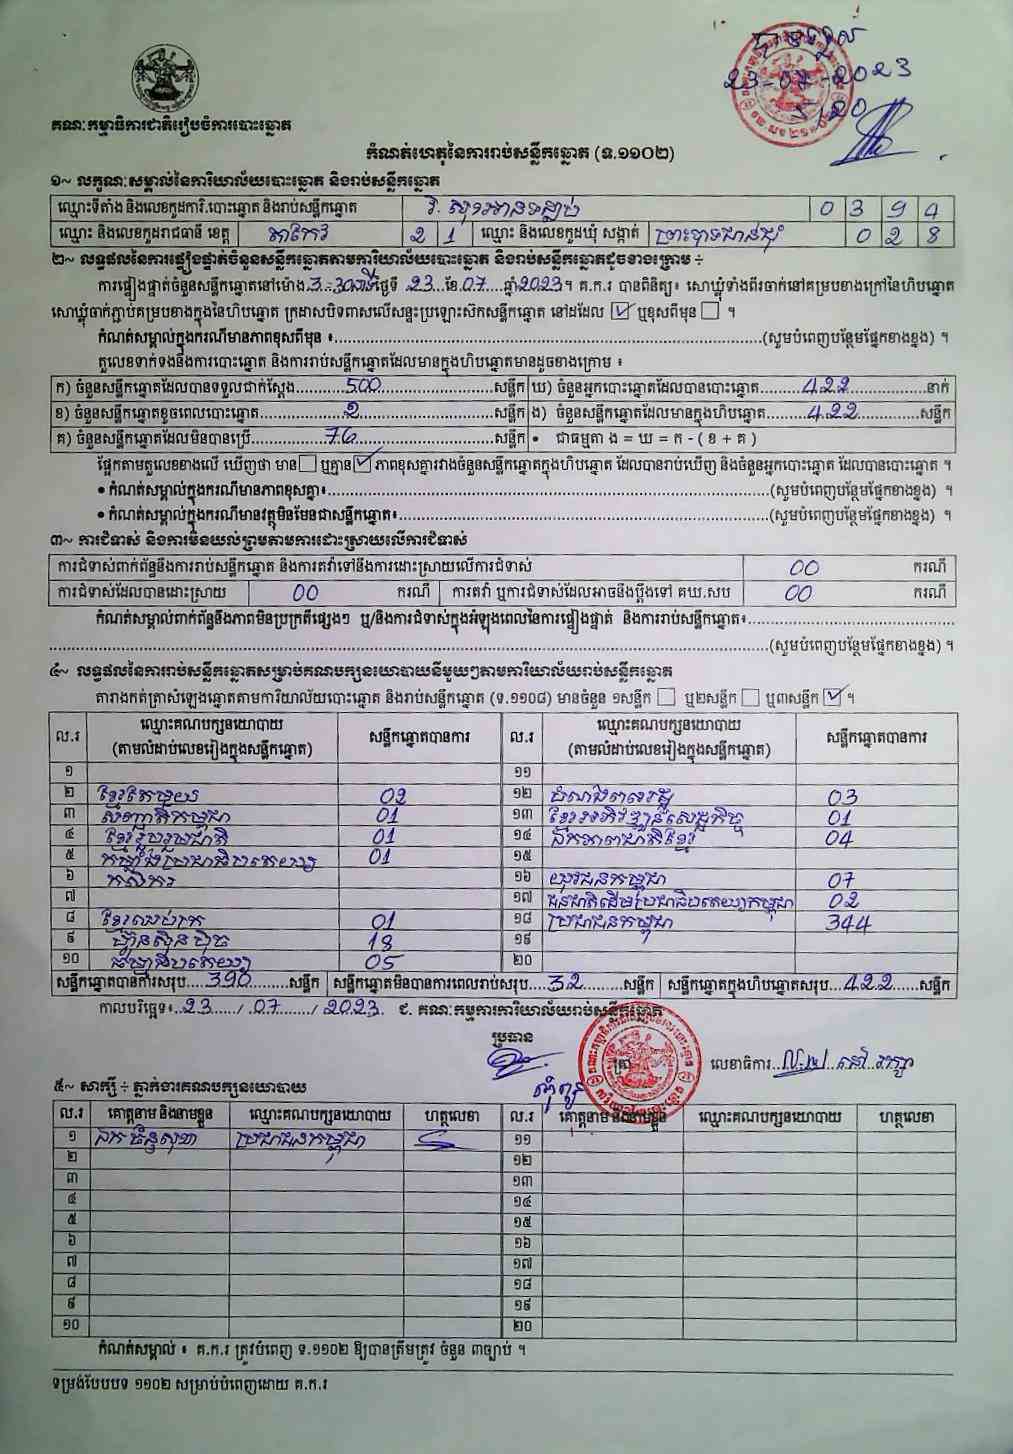 23-07-2023
គណៈកម្មាធិការជាតិរៀបចំការបោះឆ្នោត
កំណត់ហេតុនៃការរាប់សន្លឹកឆ្នោត (ទ.១១០២)
១~ លក្ខណៈសម្គាល់នៃការិយាល័យបោះឆ្នោត និងរាប់សន្លឹកឆ្នោត
ឈ្មោះទីតាំង និងលេខកូដការិ.បោះឆ្នោត និងរាប់សន្លឹកឆ្នោត 0 3 9 4
ឈ្មោះ និងលេខកូដរាជធានី ខេត្ត តាកែវ 2 1 ឈ្មោះ និងលេខកូដឃុំ សង្កាត់ ព្រះបាទជាន់ជុំ 0 2 8
២~ លទ្ធផលនៃការផ្ទៀងផ្ទាត់ចំនួនសន្លឹកឆ្នោតតាមការិយាល័យបោះឆ្នោត និងរាប់សន្លឹកឆ្នោតដូចខាងក្រោម ៖
ការផ្ទៀងផ្ទាត់ចំនួនសន្លឹកឆ្នោតនៅម៉ោង 3-30នាទី ថ្ងៃទី 23 ខែ 07 ឆ្នាំ 2023។ គ.ក.រ បានពិនិត្យ៖ សោឃ្លុំទាំងពីរចាក់នៅគម្របខាងក្រៅនៃហិបឆ្នោត
សោឃ្លុំចាក់ភ្ជាប់គម្របខាងក្នុងនៃហិបឆ្នោត ក្រដាសបិទពាសលើសន្ទះប្រឡោះស៊កសន្លឹកឆ្នោត នៅដដែល ☑ ឬខុសពីមុន ☐ ។
កំណត់សម្គាល់ក្នុងករណីមានភាពខុសពីមុន ៖..............................(សូមបំពេញបន្ថែមផ្នែកខាងខ្នង) ។
តួលេខទាក់ទងនឹងការបោះឆ្នោត និងការរាប់សន្លឹកឆ្នោតដែលមានក្នុងហិបឆ្នោតមានដូចខាងក្រោម ៖
ក) ចំនួនសន្លឹកឆ្នោតដែលបានទទួលជាក់ស្តែង 500 សន្លឹក ឃ) ចំនួនអ្នកបោះឆ្នោតដែលបានបោះឆ្នោត 422 នាក់
ខ) ចំនួនសន្លឹកឆ្នោតខូចពេលបោះឆ្នោត 2 សន្លឹក ង) ចំនួនសន្លឹកឆ្នោតដែលមានក្នុងហិបឆ្នោត 422 សន្លឹក
គ) ចំនួនសន្លឹកឆ្នោតដែលមិនបានប្រើ 76 សន្លឹក • ជាធម្មតា ង = ឃ = ក - ( ខ + គ )
ផ្អែកតាមតួលេខខាងលើ ឃើញថា មាន ☐ ឬគ្មាន ☑ ភាពខុសគ្នារវាងចំនួនសន្លឹកឆ្នោតក្នុងហិបឆ្នោត ដែលបានរាប់ឃើញ និងចំនួនអ្នកបោះឆ្នោត ដែលបានបោះឆ្នោត ។
• កំណត់សម្គាល់ក្នុងករណីមានភាពខុសគ្នា៖..............................(សូមបំពេញបន្ថែមផ្នែកខាងខ្នង) ។
• កំណត់សម្គាល់ក្នុងករណីមានវត្ថុមិនមែនជាសន្លឹកឆ្នោត៖..............................(សូមបំពេញបន្ថែមផ្នែកខាងខ្នង) ។
៣~ ការជំទាស់ និងការមិនយល់ព្រមតាមការដោះស្រាយលើការជំទាស់
ការជំទាស់ពាក់ព័ន្ធនឹងការរាប់សន្លឹកឆ្នោត និងការតវ៉ាទៅនឹងការដោះស្រាយលើការជំទាស់ 00 ករណី
ការជំទាស់ដែលបានដោះស្រាយ 00 ករណី ការតវ៉ា ឬការជំទាស់ដែលអាចនឹងប្តឹងទៅ គឃ.សប 00 ករណី
កំណត់សម្គាល់ពាក់ព័ន្ធនឹងភាពមិនប្រក្រតីផ្សេងៗ ឬ/និងការជំទាស់ក្នុងអំឡុងពេលនៃការផ្ទៀងផ្ទាត់ និងការរាប់សន្លឹកឆ្នោត៖..............................
..............................(សូមបំពេញបន្ថែមផ្នែកខាងខ្នង) ។
៤~ លទ្ធផលនៃការរាប់សន្លឹកឆ្នោតសម្រាប់គណបក្សនយោបាយនីមួយៗតាមការិយាល័យរាប់សន្លឹកឆ្នោត
តារាងកត់ត្រាសំឡេងឆ្នោតតាមការិយាល័យបោះឆ្នោត និងរាប់សន្លឹកឆ្នោត (ទ.១១០៨) មានចំនួន ១សន្លឹក ☐ ឬ២សន្លឹក ☐ ឬ៣សន្លឹក ☑ ។
ល.រ ឈ្មោះគណបក្សនយោបាយ (តាមលំដាប់លេខរៀងក្នុងសន្លឹកឆ្នោត) សន្លឹកឆ្នោតបានការ ល.រ ឈ្មោះគណបក្សនយោបាយ (តាមលំដាប់លេខរៀងក្នុងសន្លឹកឆ្នោត) សន្លឹកឆ្នោតបានការ
១ ១១
២ ខ្មែរតែមួយ 02 ១២ ដំណាំងពលរដ្ឋ 03
៣ សញ្ជាតិកម្ពុជា 01 ១៣ ខ្មែរអភិវឌ្ឍន៍សេដ្ឋកិច្ច 01
៤ ខ្មែររួបរួមជាតិ 01 ១៤ ឯកភាពជាតិខ្មែរ 04
៥ កម្លាំងប្រជាធិបតេយ្យ 01 ១៥
៦ កសិករ ១៦ យុវជនកម្ពុជា 07
៧ ១៧ ជនជាតិដើមប្រជាធិបតេយ្យកម្ពុជា 02
៨ ខ្មែរឈប់ក្រ 01 ១៨ ប្រជាជនកម្ពុជា 344
៩ ហ៊្វុនស៊ិនប៉ិច 18 ១៩
១០ ធម្មាធិបតេយ្យ 05 ២០
សន្លឹកឆ្នោតបានការសរុប 390 សន្លឹក សន្លឹកឆ្នោតមិនបានការពេលរាប់សរុប 32 សន្លឹក សន្លឹកឆ្នោតក្នុងហិបឆ្នោតសរុប 422 សន្លឹក
កាលបរិច្ឆេទ៖ 23 / 07 / 2023 ជ. គណៈកម្មការការិយាល័យរាប់សន្លឹកឆ្នោត
ប្រធាន
លេខាធិការ
៥~ សាក្សី ៖ ភ្នាក់ងារគណបក្សនយោបាយ
ល.រ គោត្តនាម និងនាមខ្លួន ឈ្មោះគណបក្សនយោបាយ ហត្ថលេខា ល.រ គោត្តនាម និងនាមខ្លួន ឈ្មោះគណបក្សនយោបាយ ហត្ថលេខា
១ ឯក ច័ន្ទសុខា ប្រជាជនកម្ពុជា ១១
២ ១២
៣ ១៣
៤ ១៤
៥ ១៥
៦ ១៦
៧ ១៧
៨ ១៨
៩ ១៩
១០ ២០
កំណត់សម្គាល់ ៖ គ.ក.រ ត្រូវបំពេញ ទ.១១០២ ឱ្យបានត្រឹមត្រូវ ចំនួន ៣ច្បាប់ ។
ទម្រង់បែបបទ ១១០២ សម្រាប់បំពេញដោយ គ.ក.រ